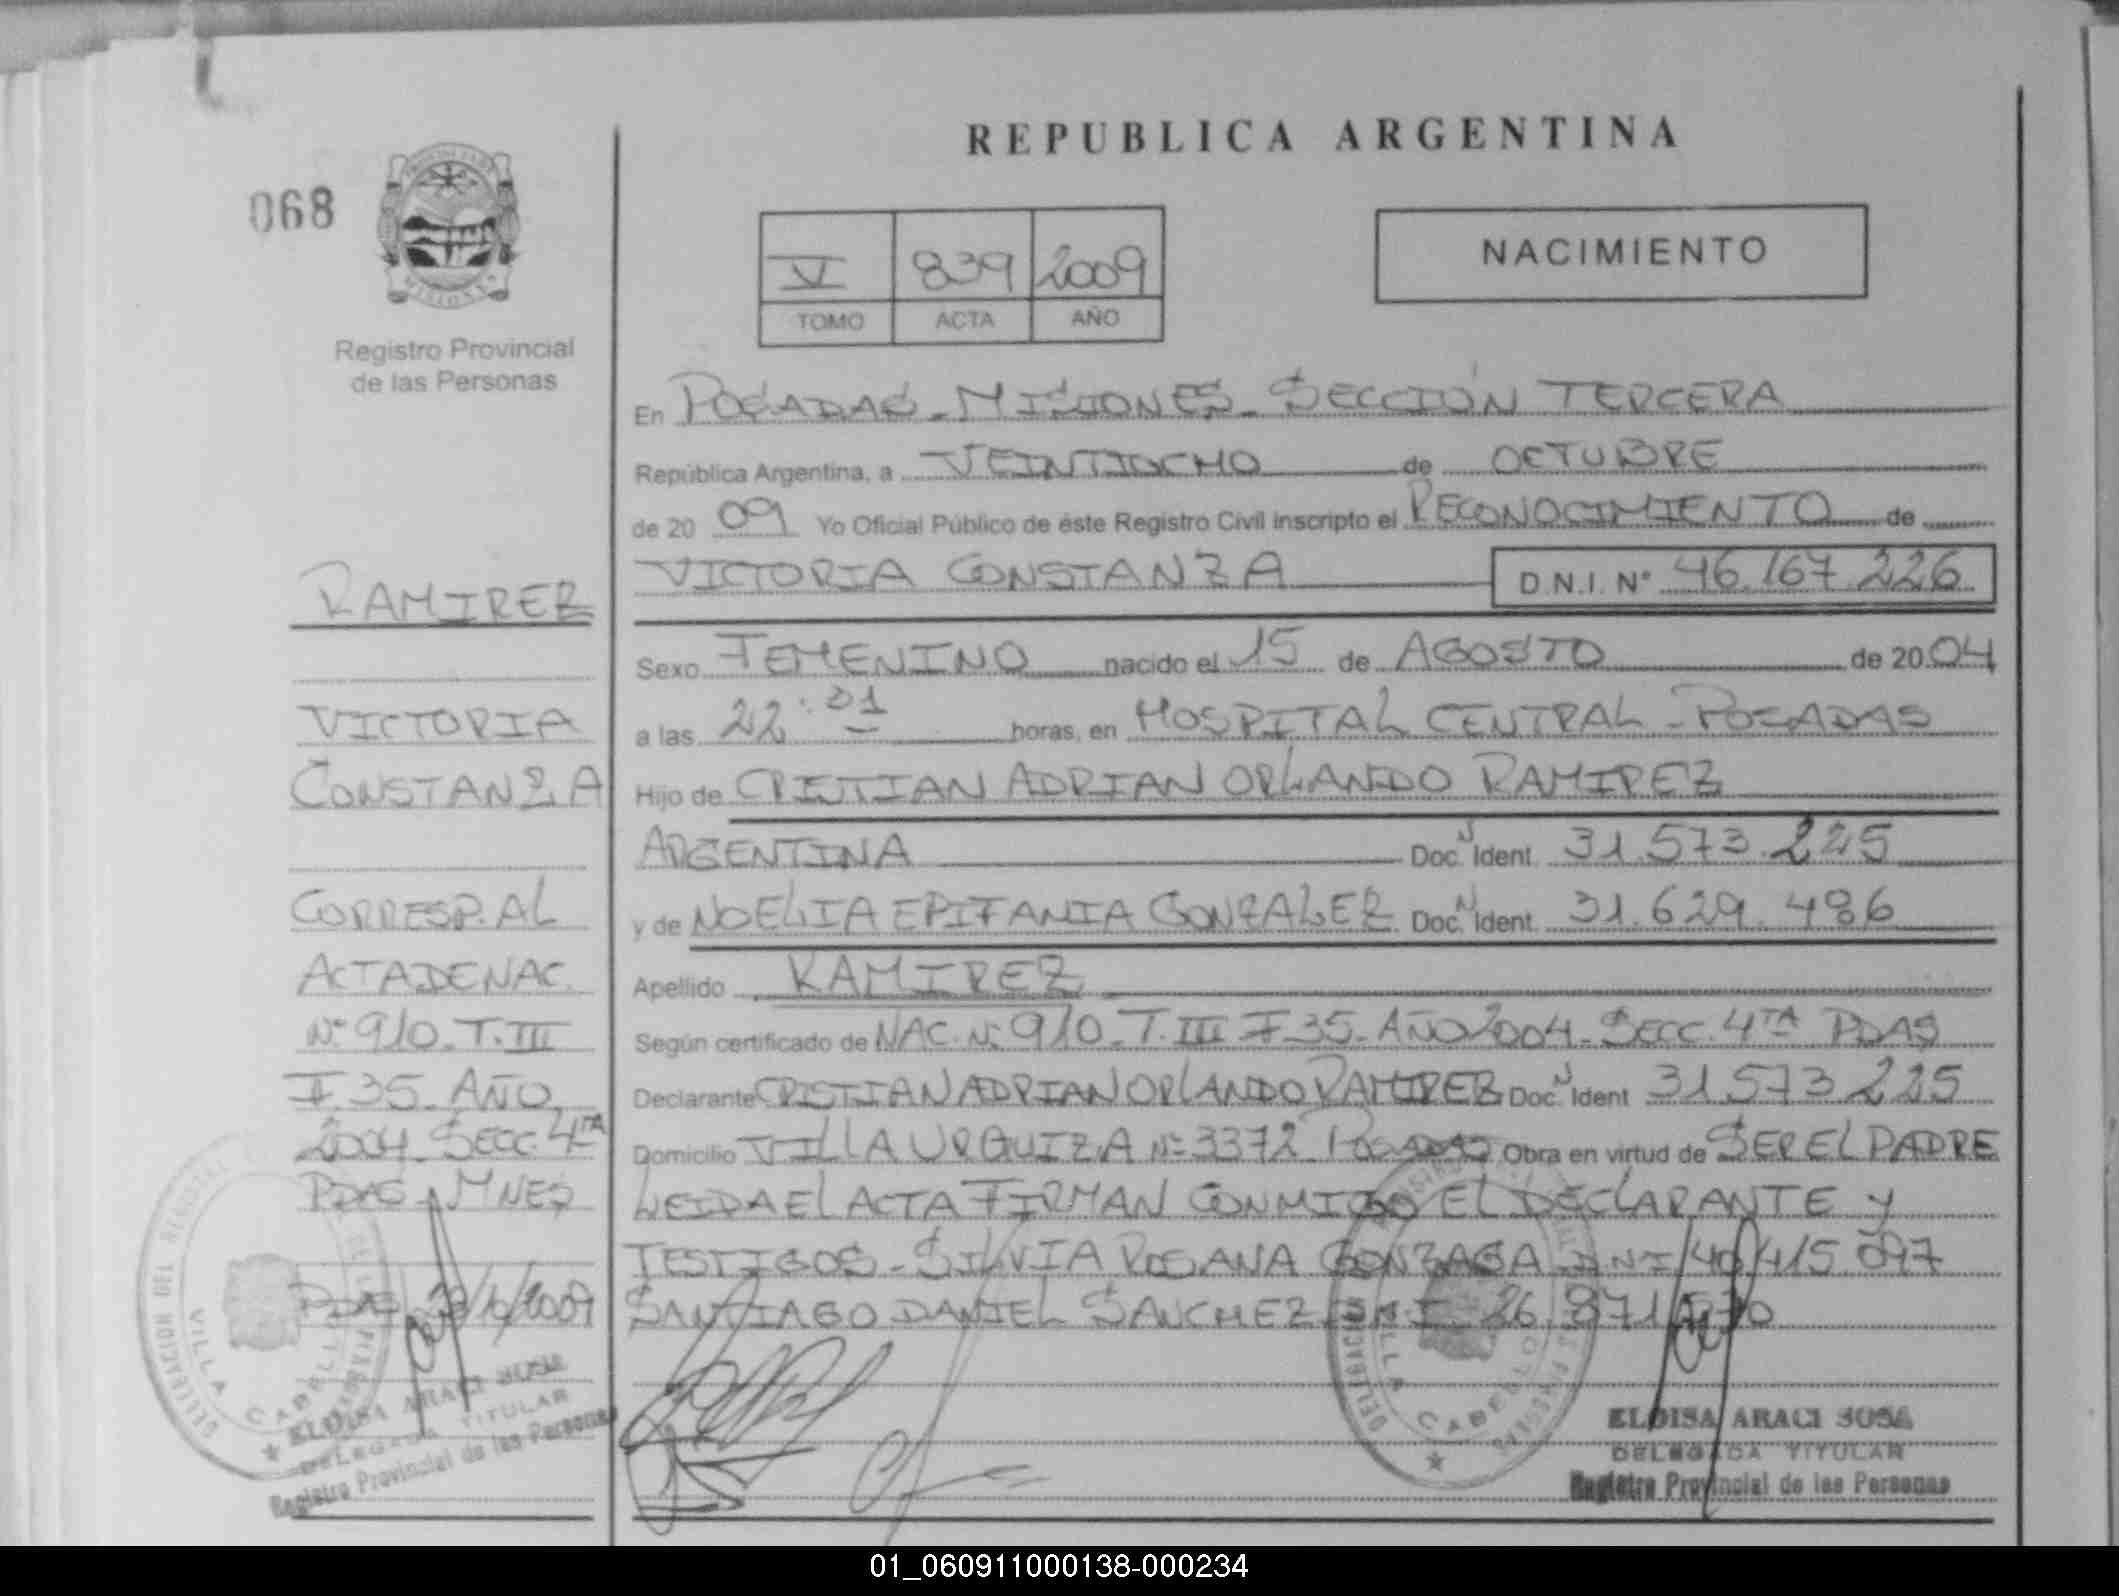 REPUBLICA ARGENTINA
068
V 839 2009
TOMO ACTA AÑO
NACIMIENTO
Registro Provincial
de las Personas
En POSADAS - MISIONES - SECCIÓN TERCERA
República Argentina, a VEINTIOCHO de OCTUBRE
de 20 09 Yo Oficial Público de éste Registro Civil inscripto el RECONOCIMIENTO de
VICTORIA CONSTANZA D.N.I. Nº 46.167.226
Sexo FEMENINO nacido el 15 de AGOSTO de 20 04
a las 22:31 horas, en HOSPITAL CENTRAL - POSADAS
Hijo de CRISTIAN ADRIAN ORLANDO RAMIREZ
ARGENTINA Doc. N Ident. 31.573.225
y de NOELIA EPIFANIA GONZALEZ Doc. N Ident. 31.629.486
Apellido RAMIREZ
Según certificado de NAC. Nº 910 - T. III F 35 - AÑO 2004 - SECC. 4TA PDAS
Declarante CRISTIAN ADRIAN ORLANDO RAMIREZ Doc. N Ident 31573225
Domicilio VILLA URQUIZA Nº 3372 POSADAS Obra en virtud de SER EL PADRE
LEIDA EL ACTA FIRMAN CONMIGO EL DECLARANTE Y
TESTIGOS - SILVIA ROSANA GONZAGA DNI 40 415 097
SANTIAGO DANIEL SANCHEZ DNI 26 871
RAMIREZ
VICTORIA
CONSTANZA
CORRESP. AL
ACTA DE NAC.
Nº 910 - T. III
F. 35 - AÑO
2004 - SECC. 4TA
PDAS - MNES
PDAS 28/10/2009
DELEGACION DEL REGISTRO
VILLA CABELLO
ELOISA ARACI SOSA
DELEGADA TITULAR
Registro Provincial de las Personas
DELEGACION
VILLA CABELLO
ELOISA ARACI SOSA
DELEGADA TITULAR
Registro Provincial de las Personas
01_060911000138-000234